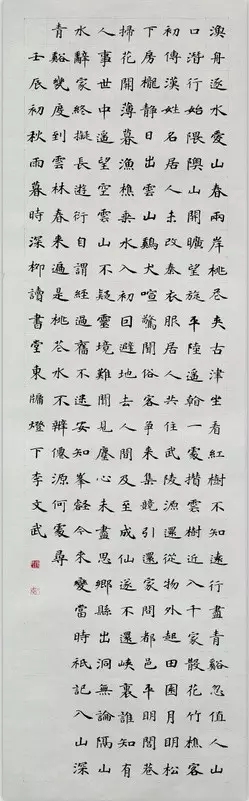 漁舟逐水愛山春兩岸桃花夾古津坐看紅樹不知遠行盡青谿忽值人山
口潛行始隈隩山開曠望旋平陸遙看一處攢雲樹近入千家散花竹樵客
初傳漢姓名居人未改秦衣服居人共住武陵源還從物外起田園月明松
下房櫳靜日出雲中鷄犬喧驚聞俗客爭來集競引還家問都邑平明閭巷
掃花開薄暮漁樵乘水入初因避地去人間及至成仙遂不還峽裏誰知有
人事世中遙望空雲山不疑靈境難聞見塵心未盡思鄉縣出洞無論隔山
水辭家終擬長遊衍自謂經過舊不迷安知峯壑今來變當時祇記入山深
青谿幾度到雲林春來遍是桃花水不辨僊源何處尋
壬辰初秋雨暮時深柳讀書堂東牖燈下李文武